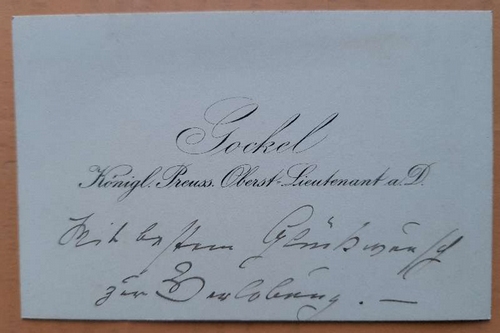 Gockel
Königl. Preuss. Oberst-Lieutenant a. D.
Mit bestem Glückwunsch
zur Verlobung. —